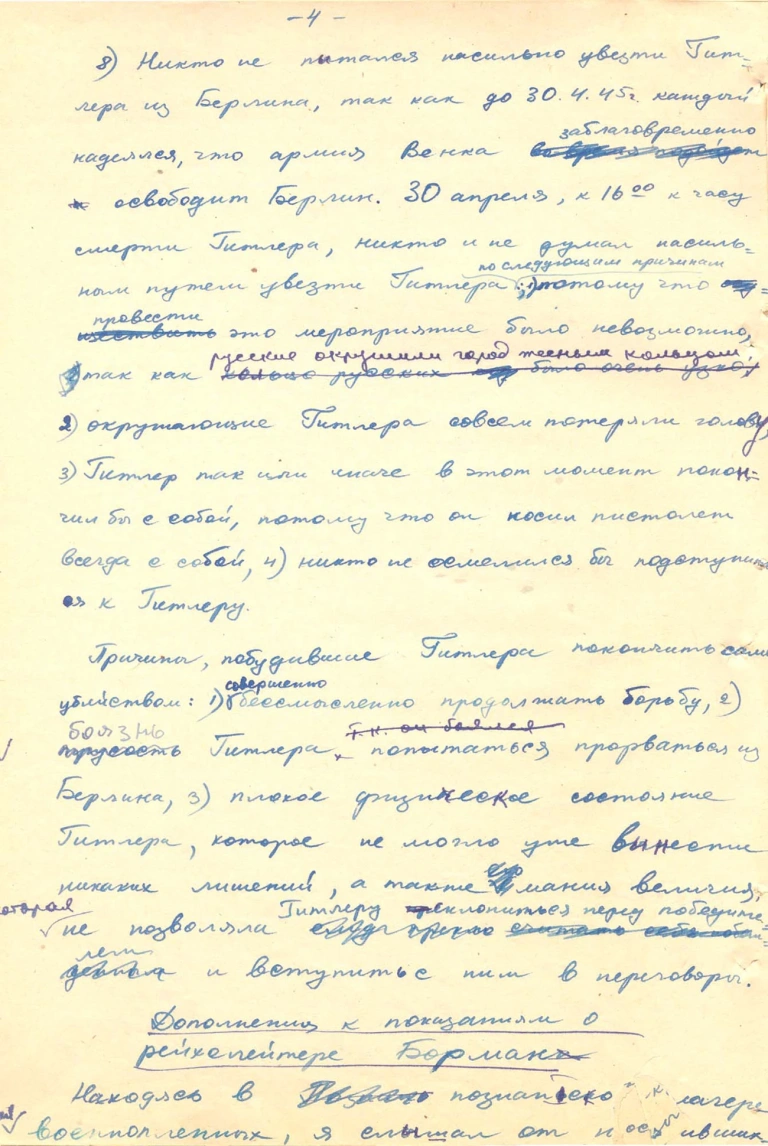 -4-
8) Никто не пытался насильно увезти Гит-
лера из Берлина, так как до 30.4.45г. каждый
заблаговременно
надеялся, что армия Венка
освободит Берлин. 30 апреля, к 16⁰⁰ к часу
смерти Гитлера, никто и не думал насиль-
по следующим причинам
ным путем увезти Гитлера: 1) потому что
провести
это мероприятие было невозможно,
русские окружили город тесным кольцом,
так как кольцо русских было очень узко,
2) окружающие Гитлера совсем потеряли голову,
3) Гитлер так или иначе в этот момент покон-
чил бы с собой, потому что он носил пистолет
всегда с собой, 4) никто не осмелился бы подступить
ся к Гитлеру.
Причины, побудившие Гитлера покончить само
совершенно
убийством: 1) бессмысленно продолжать борьбу, 2)
боязнь т.к. он боялся
трусость Гитлера попытаться прорваться из
Берлина, 3) плохое физическое состояние
Гитлера, которое не могло уже вынести
никаких лишений, а также его мания величия,
которая Гитлеру преклониться перед победите-
не позволяла
лем
и вступить с ним в переговоры.
Дополнения к показаниям о
рейхслейтере Борман
Находясь в познанско лагере
военнопленных, я слышал от